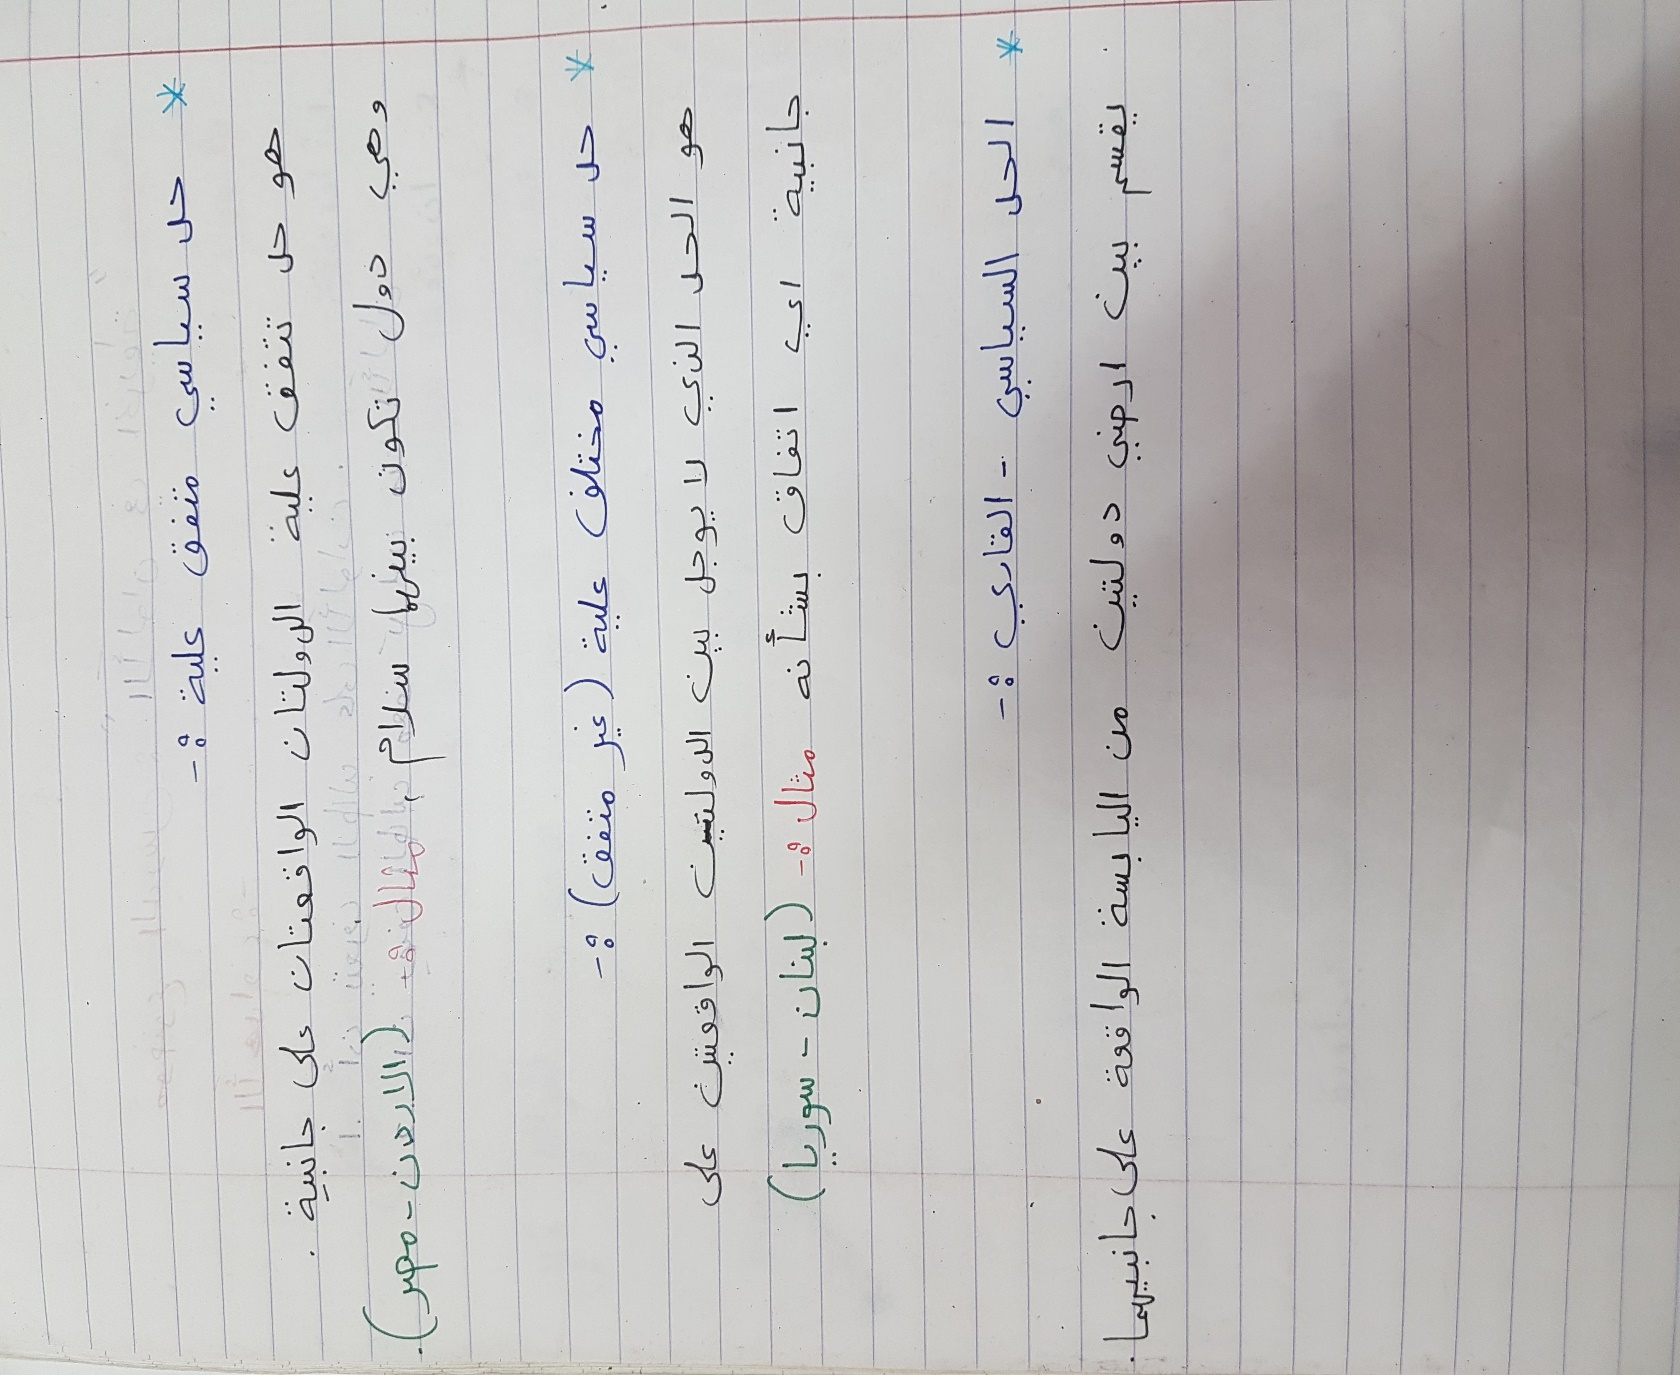 * حد سياسي متفق علية :-
هو حد تتفق علية الدولتان الواقعتان على جانبية .
وهي دول تكون بينها سلام, مثال :- (الاردن - مصر).
* حد سياسي مختلف علية (غير متفق) :-
هو الحد الذي لا يوجد بين الدولتين الواقعين على
جانبية اي اتفاق بشأنه مثال :- (لبنان - سوريا)
* الحد السياسي - القاري :-
يقسم بين ارضي دولتين من اليابسة الواقعة على جانبيهما.